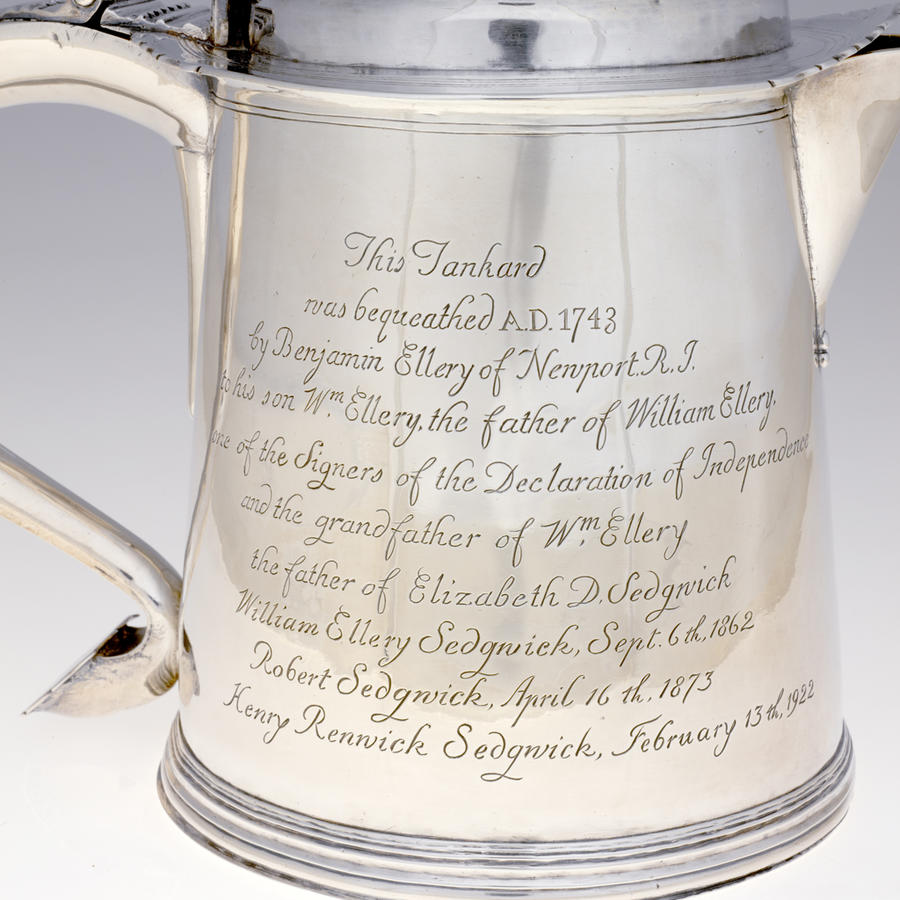 This Tankard
was bequeathed A.D. 1743
by Benjamin Ellery of Newport. R.I.
to his son Wm. Ellery, the father of William Ellery,
one of the Signers of the Declaration of Independence
and the grandfather of Wm. Ellery
the father of Elizabeth D. Sedgwick
William Ellery Sedgwick, Sept. 6th, 1862
Robert Sedgwick, April 16 th, 1873
Henry Renwick Sedgwick, February 13 th, 1922